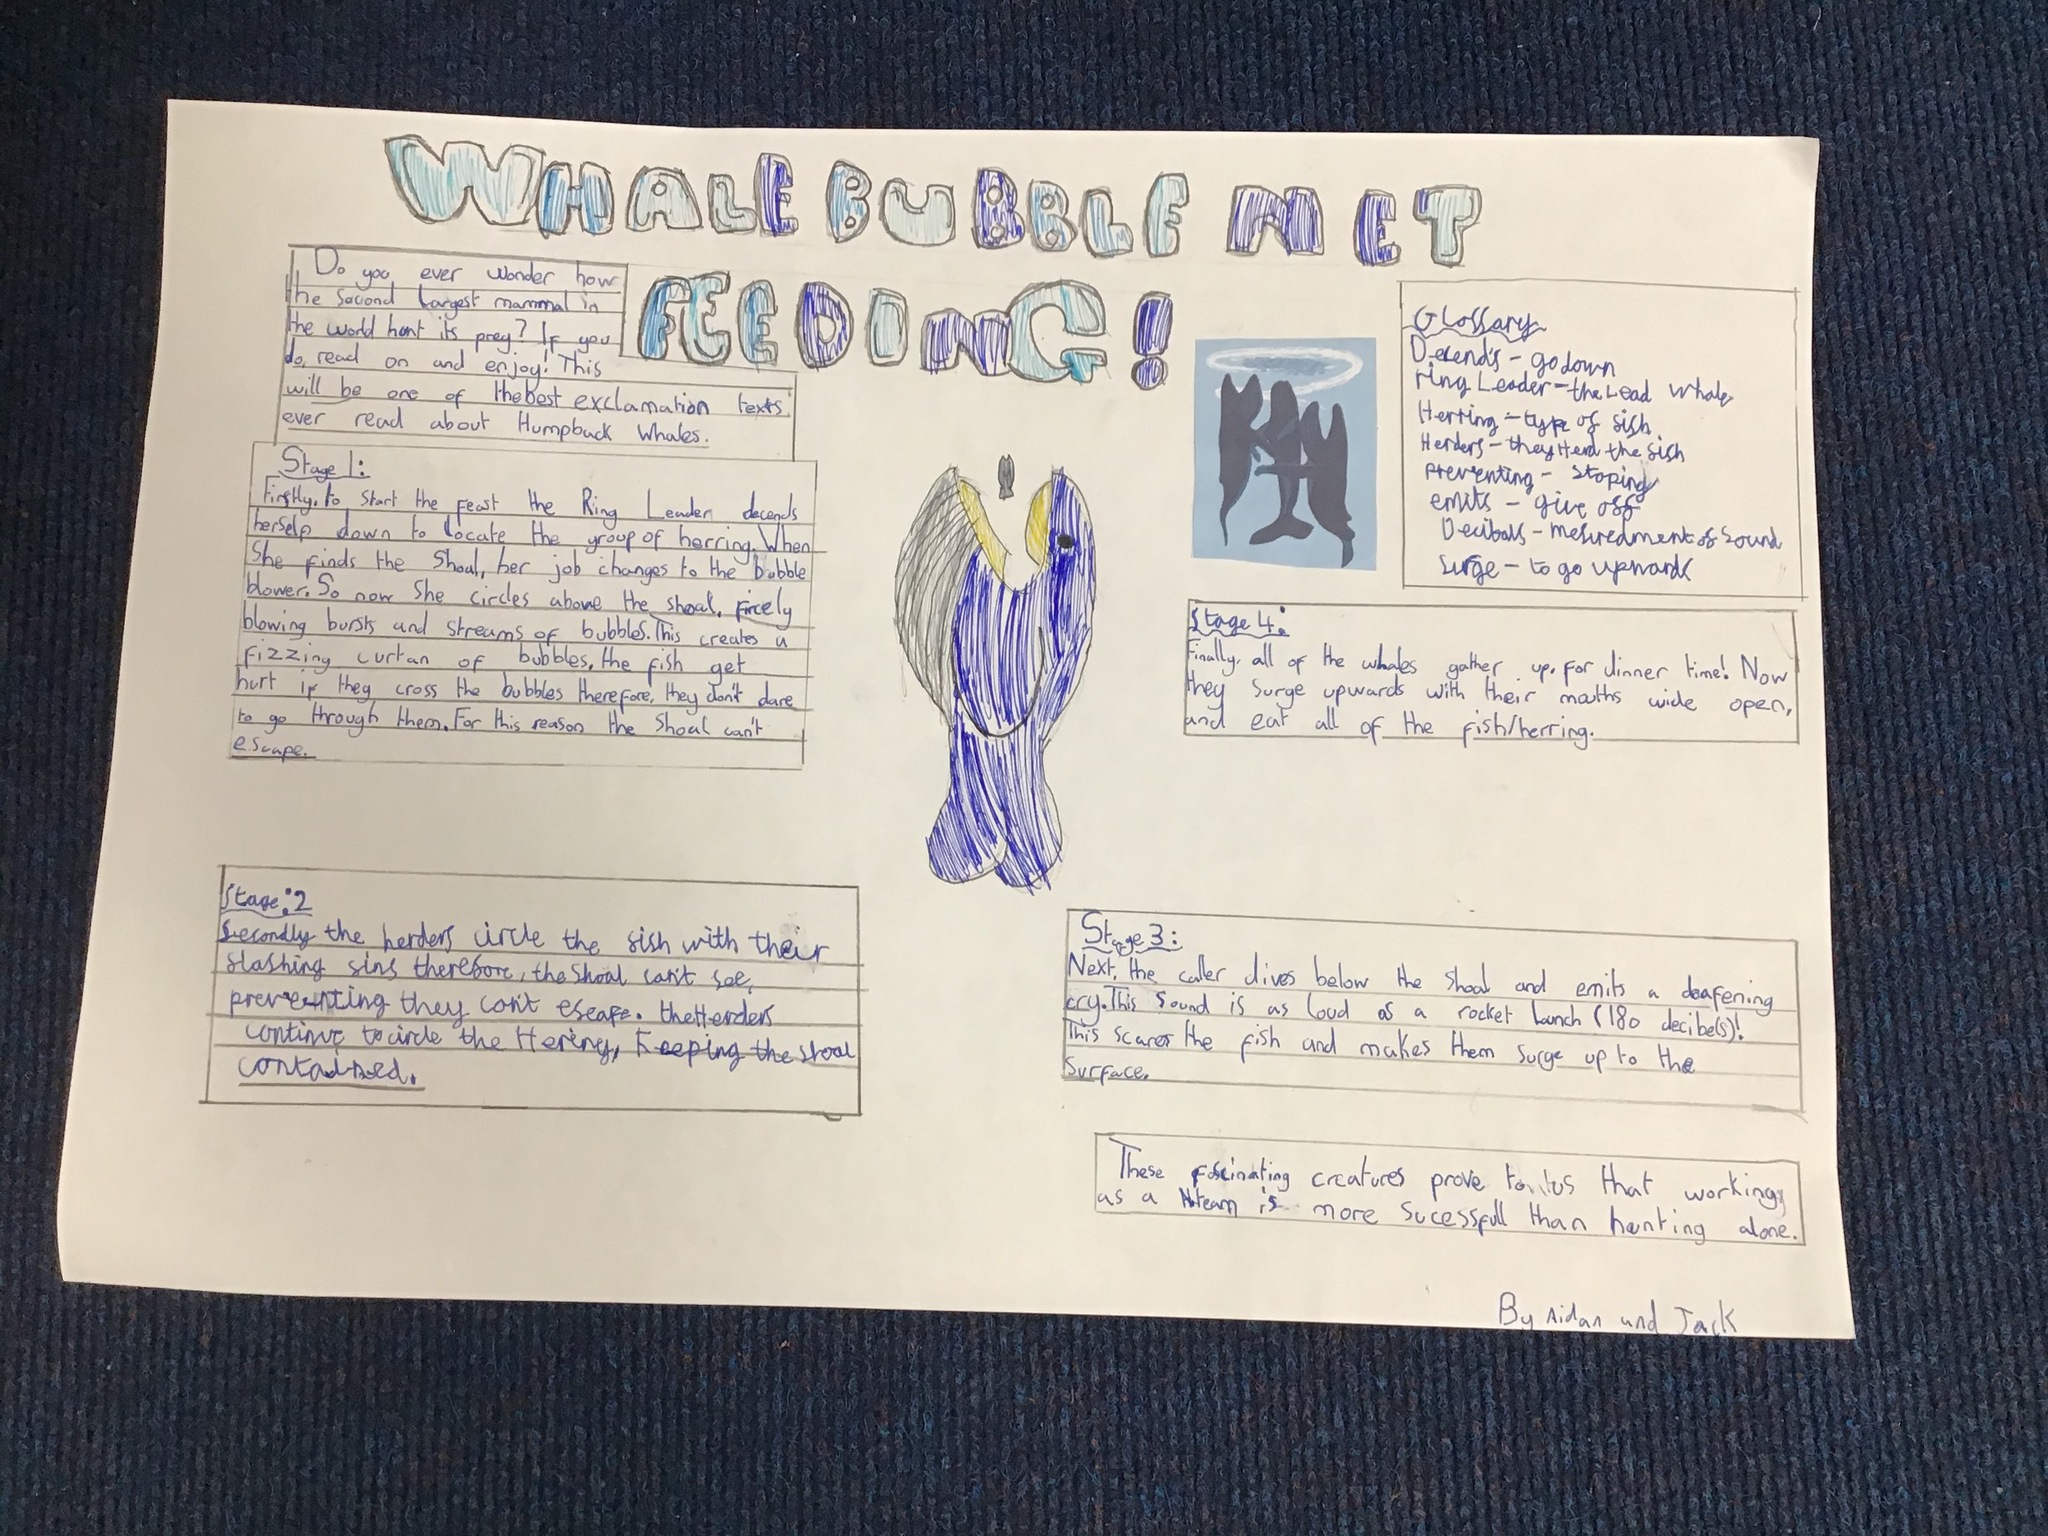 WHALE BUBBLE NET
FEEDING!
Do you ever wonder how
the second largest mammal in
the world hunt its prey? If you
do, read on and enjoy! This
will be one of the best exclamation texts
ever read about Humpback Whales.
Stage 1:
Firstly, to start the feast the Ring Leader decends
herself down to locate the group of herring. When
She finds the Shoal, her job changes to the bubble
blower. So now She circles above the shoal, fircely
blowing bursts and streams of bubbles. This creates a
fizzing curtan of bubbles, the fish get
hurt if they cross the bubbles therefore, they don't dare
to go through them. For this reason the Shoal can't
escape.
Stage:2
Secondly the herders circle the fish with their
slashing fins therefore, the shoal can't see,
preventing they can't escape. the Herders
continue to circle the Hering, Keeping the shoal
contained.
Glossary
Decends - go down
ring Leader - the Lead whale
Herring - type of fish
Herders - they Herd the fish
preventing - stoping
emits - give off
Decibals - mesuredment of Sound
Surge - to go upwards
Stage 4:
Finally, all of the whales gather up, for dinner time! Now
they surge upwards with their mouths wide open,
and eat all of the fish/herring.
Stage 3:
Next, the caller dives below the shoal and emits a deafening
cry. This Sound is as loud as a rocket launch (180 decibels)!
This scares the fish and makes them surge up to the
surface.
These fascinating creatures prove to us that working
as a team is more sucessfull than hunting alone.
By Aidan and Jack